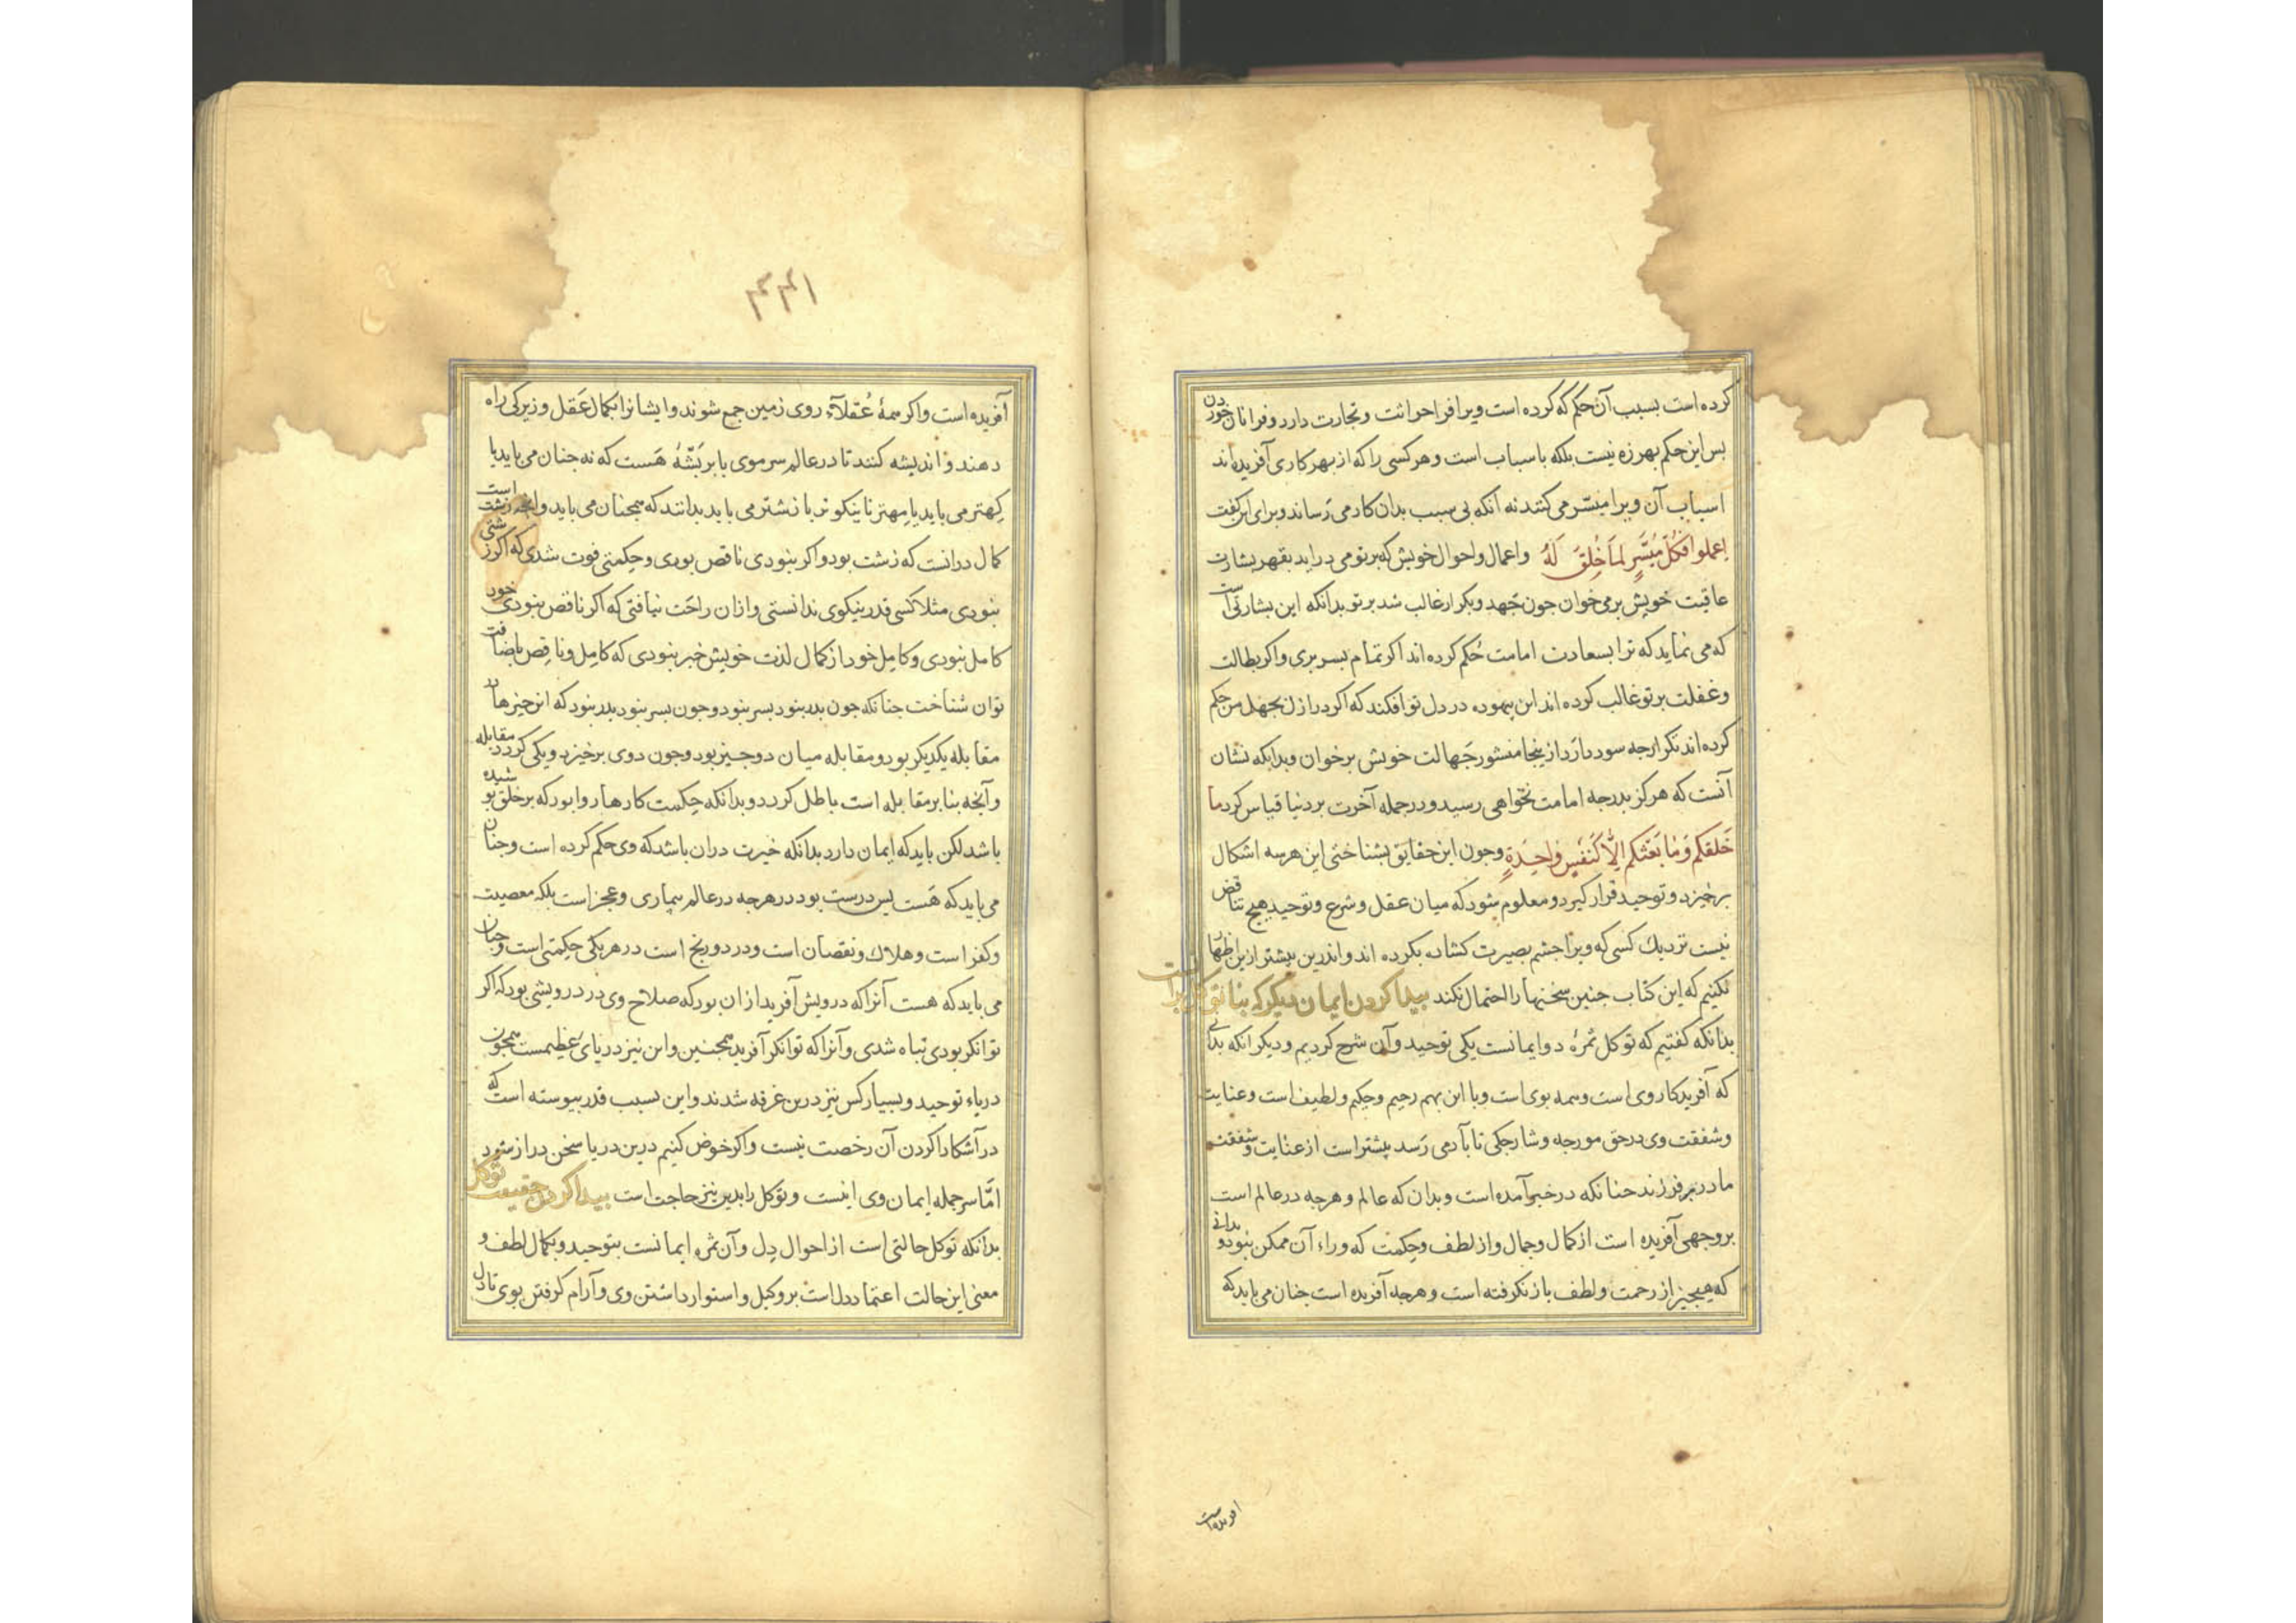 کرده است بسبب آن حکم که کرده است ویرا فرا حراثت و تجارت دارد و فرا نان خوردن
بس این حکم بهرزه نیست بلکه باسباب است و هر کسی را که از بهر کاری آفریده‌اند
اسباب آن ویرا میسّر می کنند نه آنکه بی سبب بدان کار می رَساند و برای این کفت
اِعملوا فَکُلٌ مُیَسَّرٍ لِمَا خُلِقَ لَهُ واعمال و احوال خویش که بر تو می دراید بقهر بشارت
عاقبت خویش بر می خوان جون جَهد و تکرار غالب شد بر تو بدانکه این بشارتی است
که می نماید که ترا بسعادت امامت حُکم کرده اند اکر تمام بسر بری و اکر بطالت
و غفلت بر تو غالب کرده اند این بیهوده در دل تو افکند که اکر در ازل بجهل من حکم
کرده اند تکرار جه سود دارد از ینجا منشور جَهالت خویش برخوان و بدانکه نشان
آنست که هرکز بدرجه امامت نخواهی رسید و در جمله آخرت بر دنیا قیاس کرد ما
خَلَقکم وَ مٰا بَعَثکم اِلّا کَنَفسٍ وٰاحِدَةٍ و جون این حقایق بشناختی این هر سه اشکال
برخیزد و توحید قرار کیرد و معلوم شود که میان عقل و شرع و توحید هیج تناقض
نیست نزدیك کسی که ویرا جشم بصیرت کشاده بکرده اند و اندرین بیشتر ازین اظهار
نکنیم که این کتاب جنین سخنها را احتمال نکند بیدا کردن ایمان دیکر که بنا توکل برانست
بدانکه کفتیم که توکل ثمرهٔ دو ایمانست یکی توحید و آن شرح کردیم و دیکر آنکه بدانی
که آفریدکار وی است و همه بوی است و با این بهم رحیم و حکیم و لطیف است و عنایت
و شفقت وی در حق مورجه و شارجکی تا بآدمی رَسد بیشتر است از عنایت و شفقت
مادر بر فرزند جنانکه در خبر آمده است و بدان که عالم و هرجه در عالم است
بر وجهی آفریده است از کمال و جمال و از لطف و حکمت که وراء آن ممکن نبود و بدانی
که هیجیز از رحمت و لطف باز نکرفته است و هرجه آفریده است جنان می باید که
آفریده است
۱۴۴
آفریده است و اکر همهٔ عُقلآء روی زمین جمع شوند و ایشانرا بکمال عَقل و زیرکی راه
دهند و اندیشه کنند تا در عالم سر موی یا بر بَشّهٔ هَست که نه جنان می باید یا
کِهتر می باید یا مِهتر یا نیکوتر یا زشتر می باید بدانند که همجنان می باید و آنجه زشت است
کمال در آنست که زشت بود و اکر نبودی ناقص بودی و حکمتی فوت شدی که اکر زشتی
نبودی مثلا کسی قدر نیکوی ندانستی و ازان راحَت نیافتی که اکر ناقص نبودی خود
کامل نبودی و کامِل خود از کمال لذت خویش خبر نبودی که کامِل و ناقِص باضافت
توان شناخت جنانکه جون بدر نبود بسر نبود و جون بسر نبود بدر نبود که این جیزها در
مقابله یکدیکر بود و مقابله میان دو جیز بود و جون دوی برخیزد و یکی کردد مقابله
و آنجه بنا بر مقابله است باطل کردد و بدانکه حِکمت کارها روا بود که بر خلق بوشیده
باشد لکن باید که ایمان دارد بدانکه خیرت دران باشد که وی حکم کرده است و جنان
می باید که هَست بس درست بود در هرجه در عالم بیماری و عجز است بلکه معصیت
و کفر است و هلاك و نقصان است و درد و رنج است در هر یکی حِکمتی است و جنان
می باید که هست آنرا که درویش آفرید ازان بود که صلاح وی در درویشی بود که اکر
توانکر بودی تباه شدی و آنرا که توانکر آفرید همجنین و این نیز دریای عَظیمست همجون
دریاء توحید و بسیار کس نیز درین غرقه شدند و این بسبب قدر بیوسته است که
در آشکارا کردن آن رخصت نیست و اکر خوض کنیم درین دریا سخن دراز شود
امّا سر جمله ایمان وی اینست و توکل را بدین نیز حاجت است بیدا کردن حقیقت توکل
بدانکه توکل حالتی است از احوال دِل و آن ثمره ایمانست بتوحید و بکمال لطف و
معنی این حالت اعتماد دل است بر وکیل و استوار داشتن وی و آرام کرفتن بوی تا دل